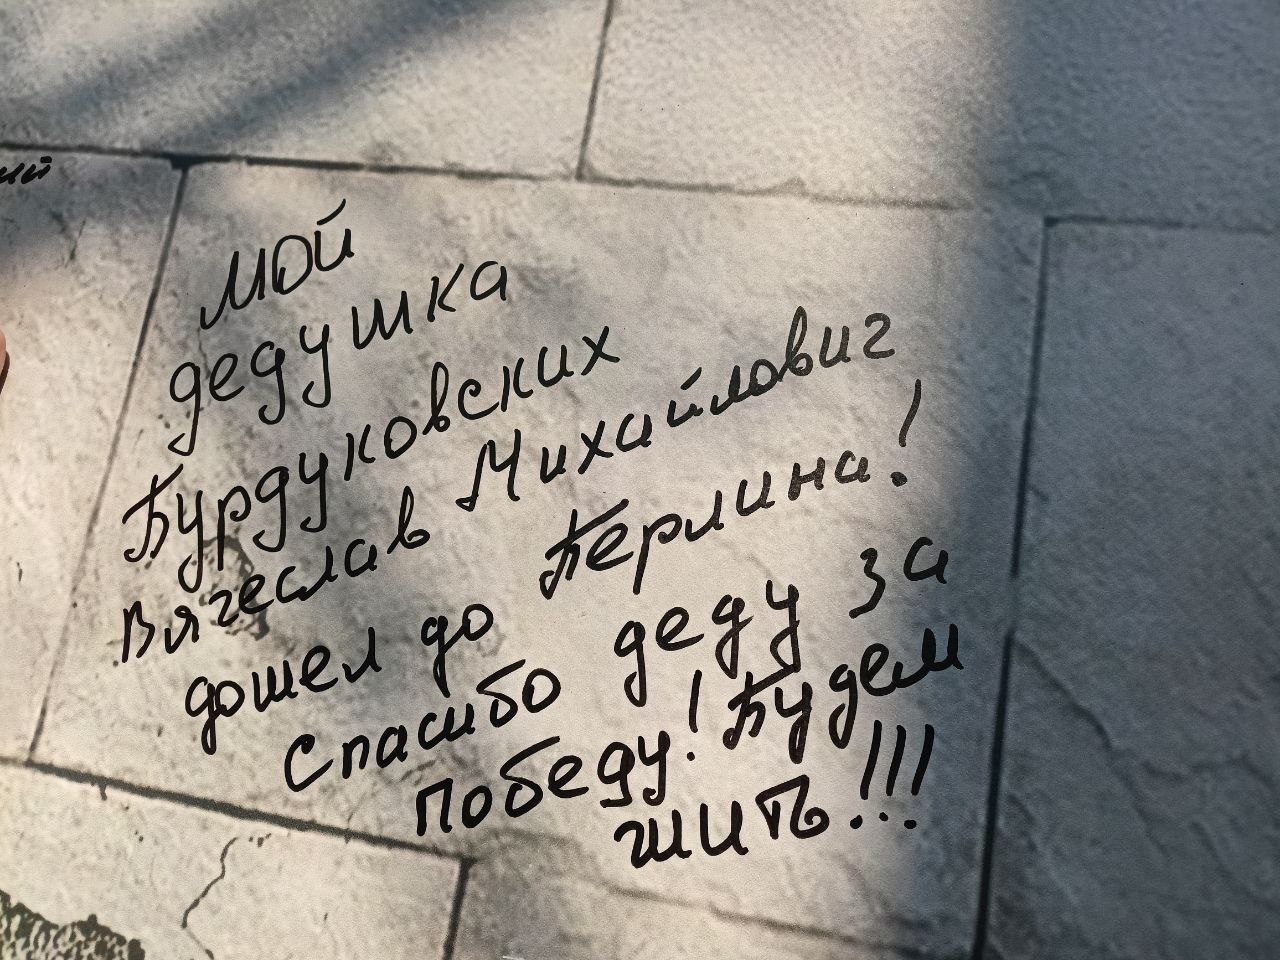 Мой
дедушка
Бурдуковских
Вячеслав Михайлович
дошел до Берлина!
Спасибо деду за
победу! Будем
жить!!!